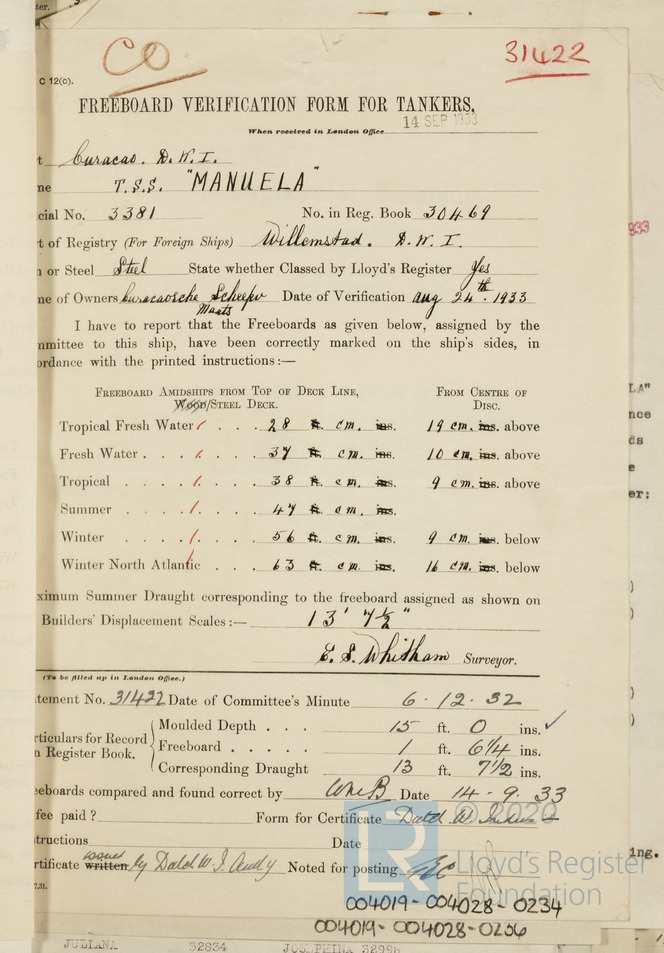 ter.
CO
31422
C 12(c).
FREEBOARD VERIFICATION FORM FOR TANKERS.
When received in London Office
14 SEP 1933
t Curacao. D.W.I.
me T.S.S. "MANUELA"
cial No. 3381 No. in Reg. Book 30469
t of Registry (For Foreign Ships) Willemstad. D.W.I.
n or Steel Steel State whether Classed by Lloyd's Register Yes
ne of Owners Curacaosche Scheepv Maats Date of Verification Aug 24th. 1933
I have to report that the Freeboards as given below, assigned by the
mmittee to this ship, have been correctly marked on the ship's sides, in
ordance with the printed instructions:—
FREEBOARD AMIDSHIPS FROM TOP OF DECK LINE, FROM CENTRE OF
WOOD/STEEL DECK. DISC.
Tropical Fresh Water . . . 28 ft. cm. ins. 19 cm. ins. above
Fresh Water . . . . . . 37 ft. cm. ins. 10 cm. ins. above
Tropical . . . . . . . 38 ft. cm. ins. 9 cm. ins. above
Summer . . . . . . . 47 ft. cm. ins.
Winter . . . . . . . 56 ft. cm. ins. 9 cm. ins. below
Winter North Atlantic . . . 63 ft. cm. ins. 16 cm. ins. below
ximum Summer Draught corresponding to the freeboard assigned as shown on
Builders' Displacement Scales:— 13' 7½"
E. S. Whitham Surveyor.
(To be filled up in London Office.)
tement No. 31422 Date of Committee's Minute 6.12.32
rticulars for Record
n Register Book.
Moulded Depth . . . 15 ft. 0 ins.
Freeboard . . . . . 1 ft. 6¼ ins.
Corresponding Draught 13 ft. 7½ ins.
eeboards compared and found correct by Date 14.9.33
fee paid ? Form for Certificate
tructions Date
rtificate written issued by Noted for posting
7.31.
© 2020
Lloyd's Register
Foundation
LR
004019-004028-0234
004019-004028-0236
JULIANA 32834 JOSEPHINA 32996
933
LA"
nce
ds
e
er:
)
)
)
)
ing.